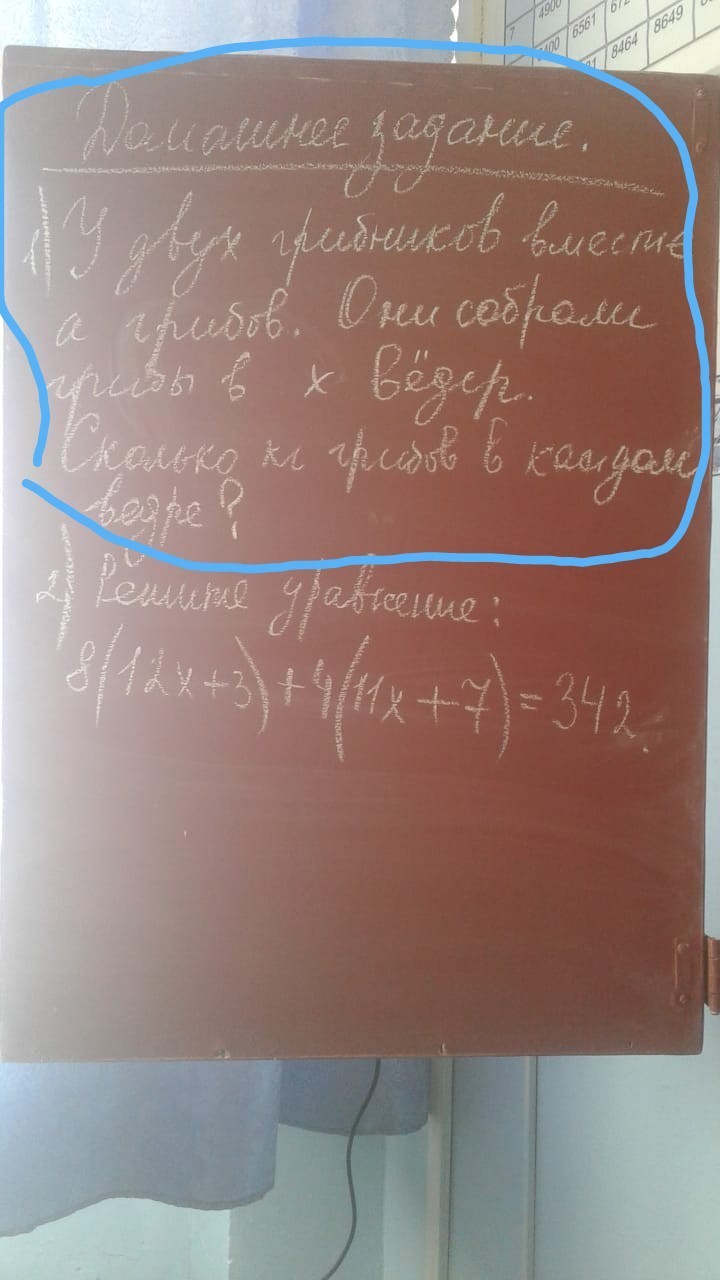 7 4900
6400 6561 672
8464 8649
Домашнее задание.
1) У двух грибников вместе
а грибов. Они собрали
грибы в х вёдер.
Сколько кг грибов в каждом
ведре?
2) Решите уравнение:
8(12x+3)+4(11x+7)=342.